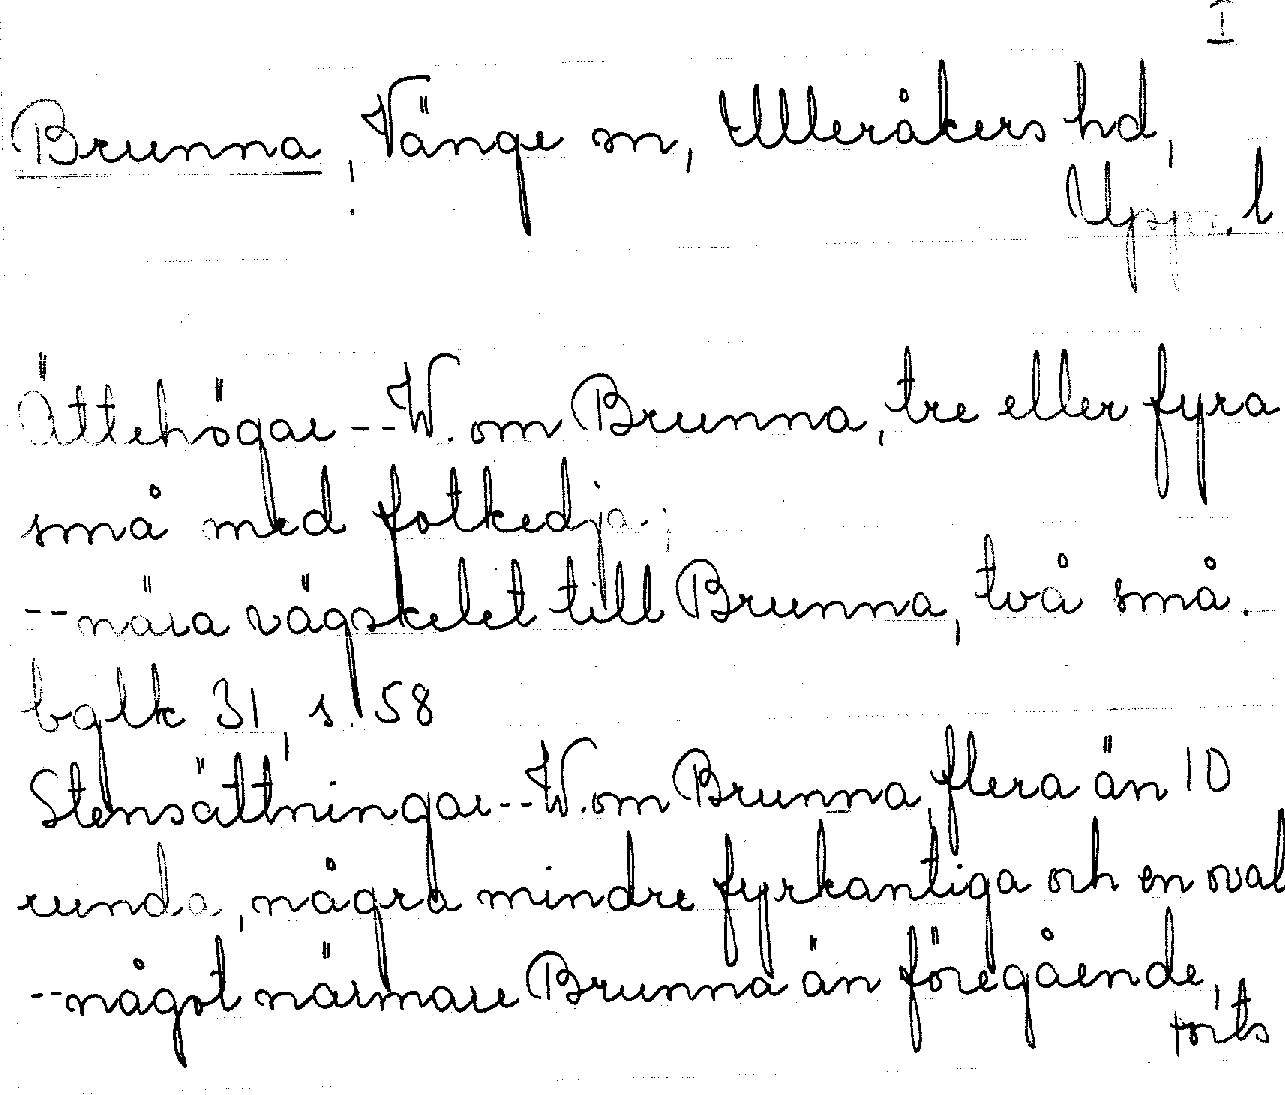 I
Brunna, Vänge sn, Ulleråkers hd,
Uppl. l
Ättehögar -- W. om Brunna, tre eller fyra
små med fotkedja;
-- nära vägskelet till Brunna, två små.
bglk 31, s. 58
Stensättningar -- W. om Brunna, flera än 10
runda, några mindre fyrkantiga och en oval
-- något närmare Brunna än föregående,
forts